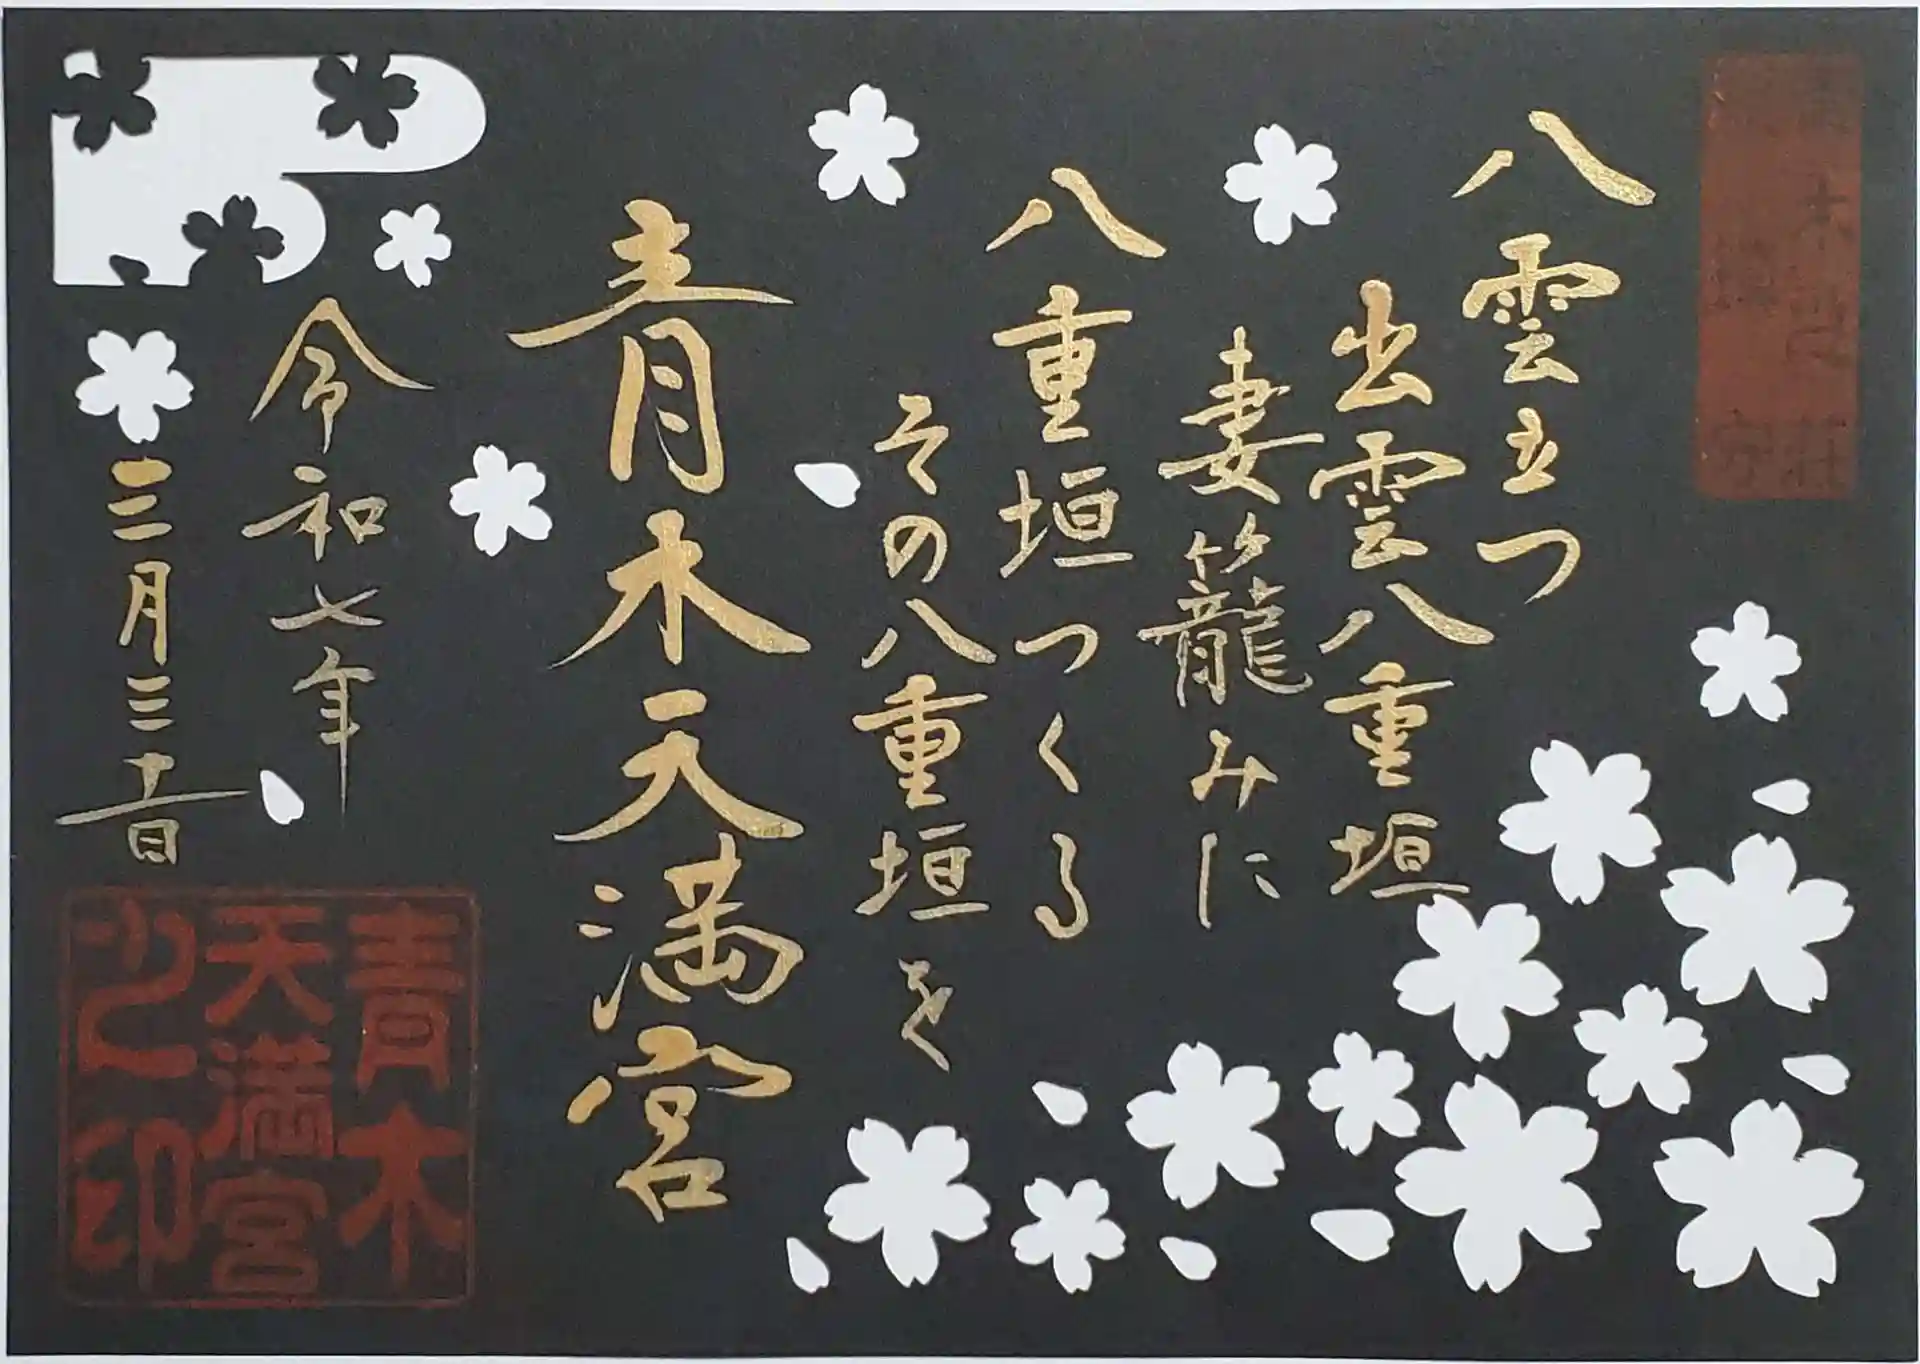 青木之荘
八雲立つ
出雲八重垣
妻籠みに
八重垣つくる
その八重垣を
青木天満宮
令和七年
三月三十一日
青木
天満宮
之印